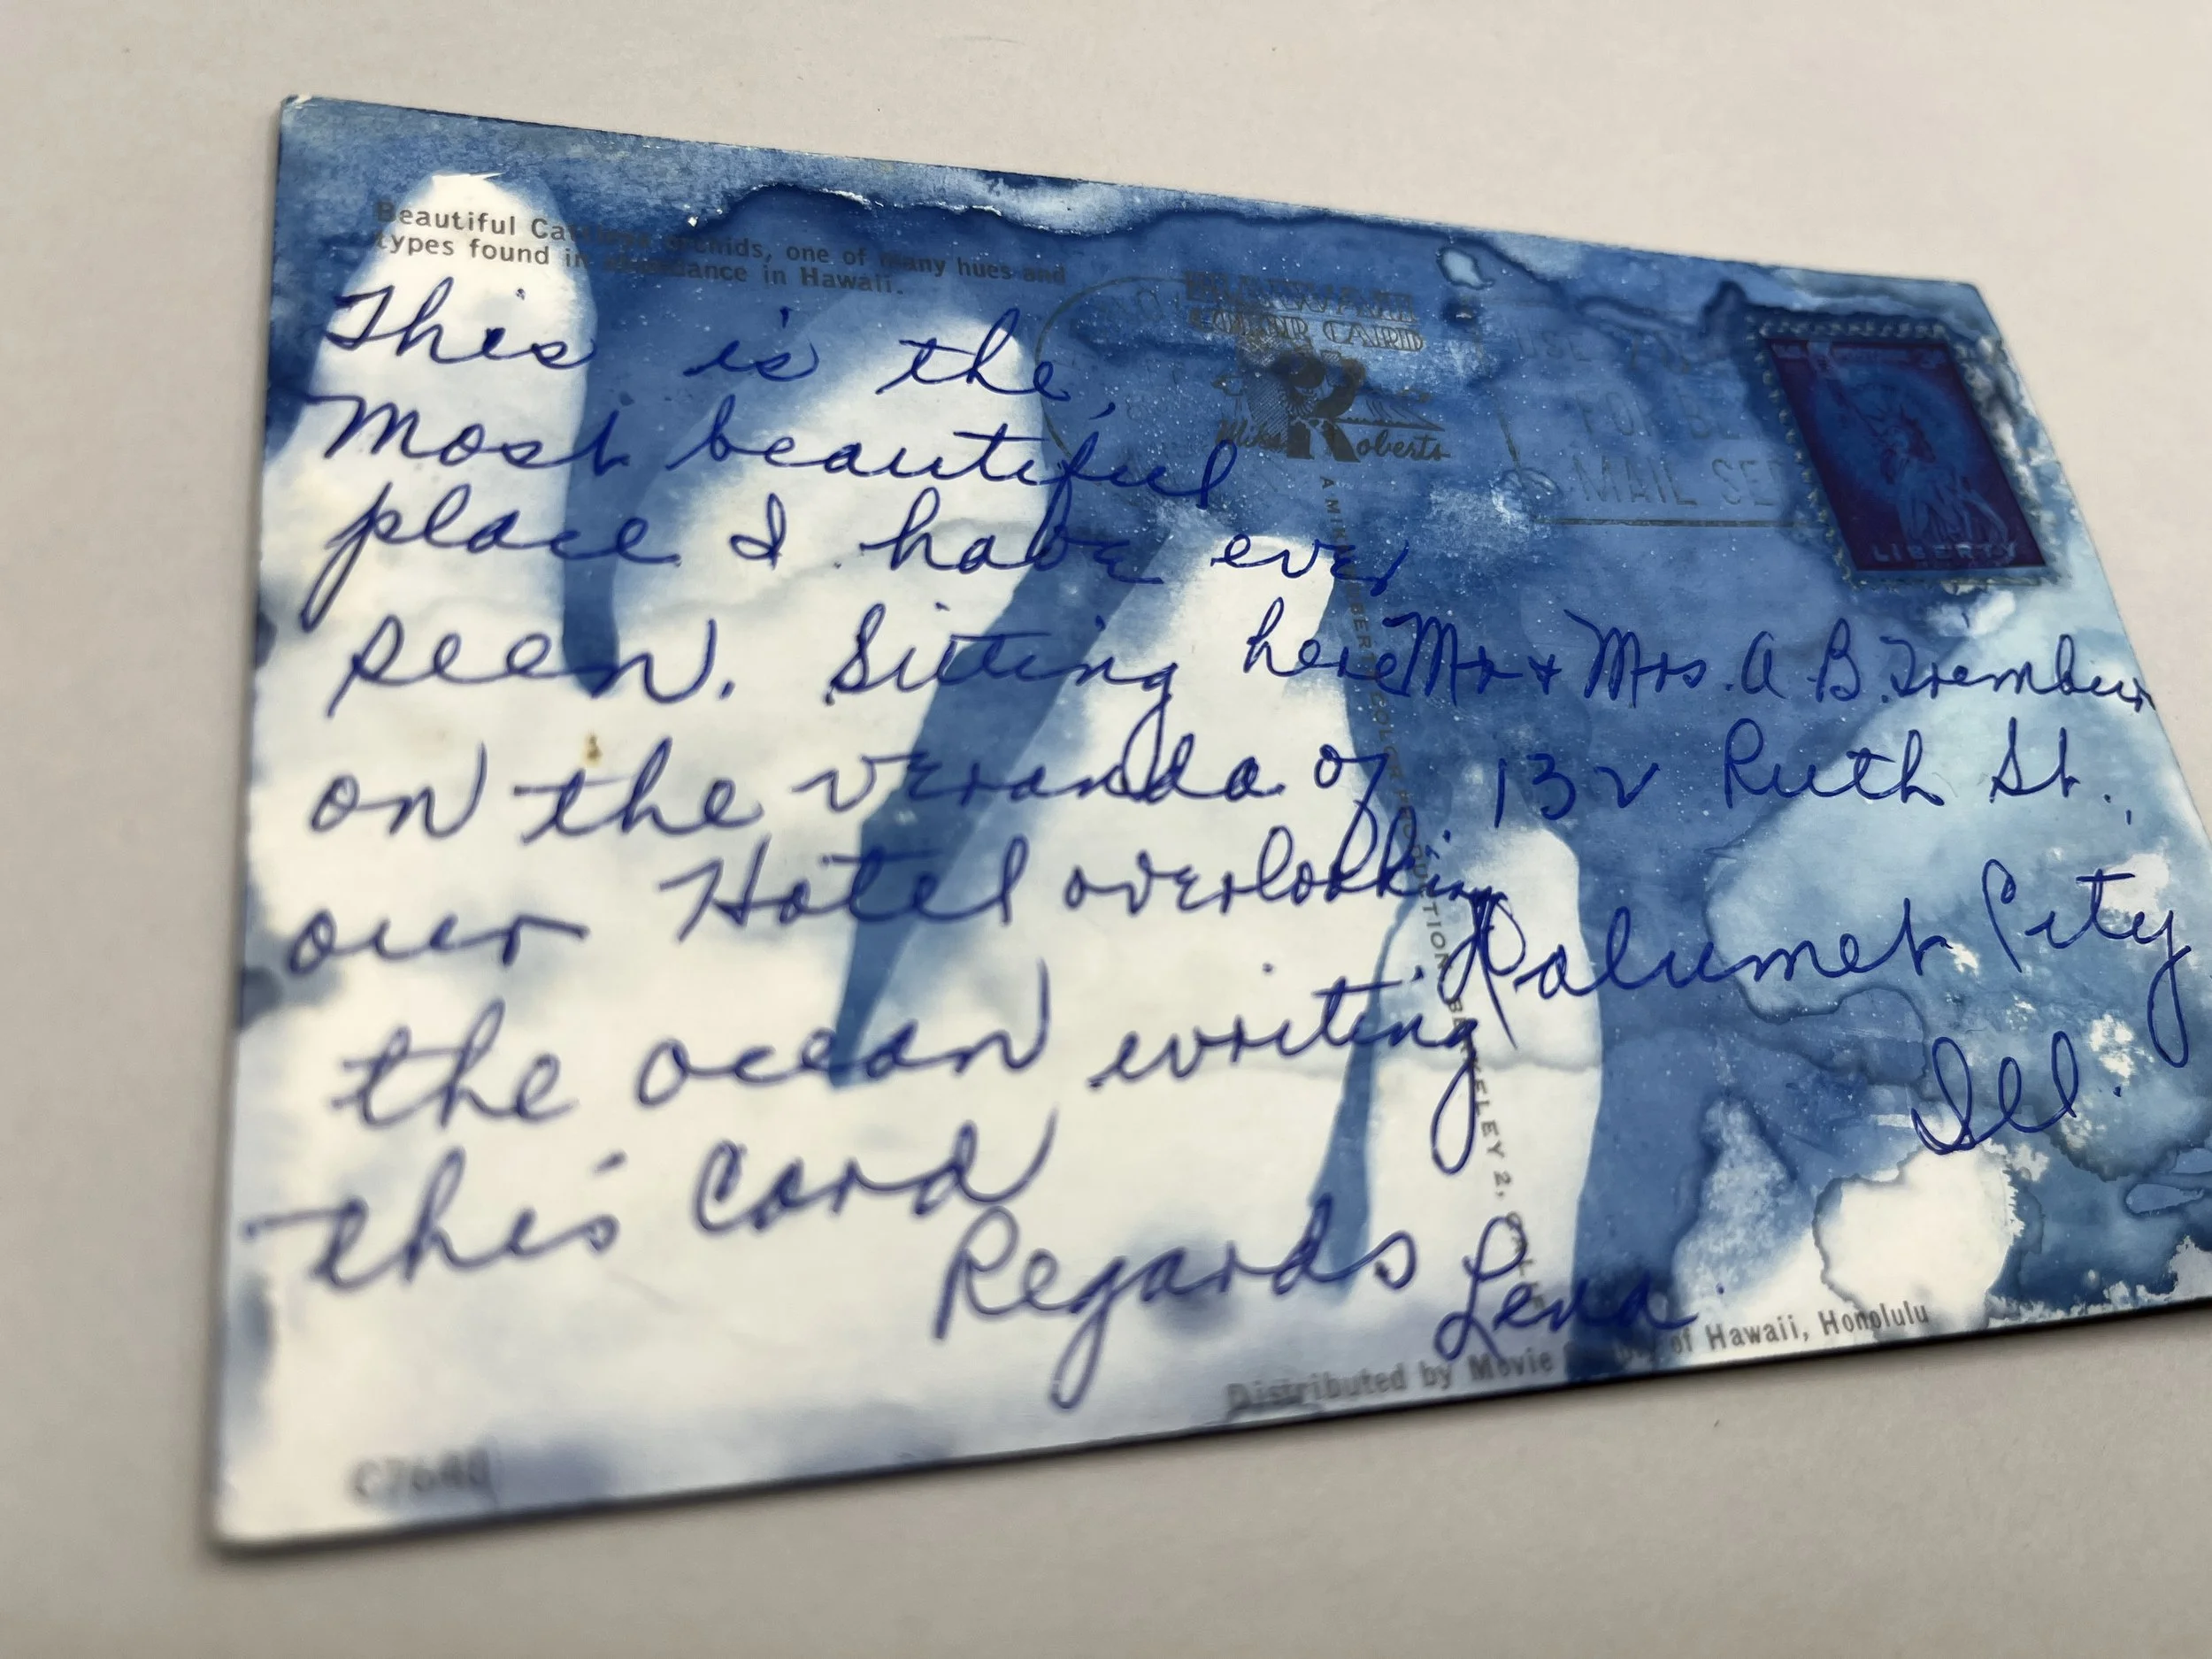 Beautiful Cattleya orchids, one of many hues and
types found in abundance in Hawaii.
This is the,
Most beautiful
place I have ever
seen. Sitting here
on the veranda of
our Hotel overlooking
the ocean writing
this Card
Regards Lena
C7640
COLOR CARD
Mike Roberts
A MIKE ROBERTS COLOR PRODUCTION, BERKELEY 2, CALIF.
USE
MAIL SE
LIBERTY
Mr + Mrs. A B.
132 Ruth St.
Calumet City
Ill.
Distributed by Movie of Hawaii, Honolulu